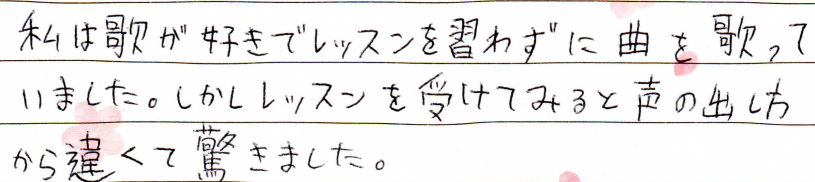 私は歌が好きでレッスンを習わずに曲を歌って
いました。しかしレッスンを受けてみると声の出し方
から違くて驚きました。